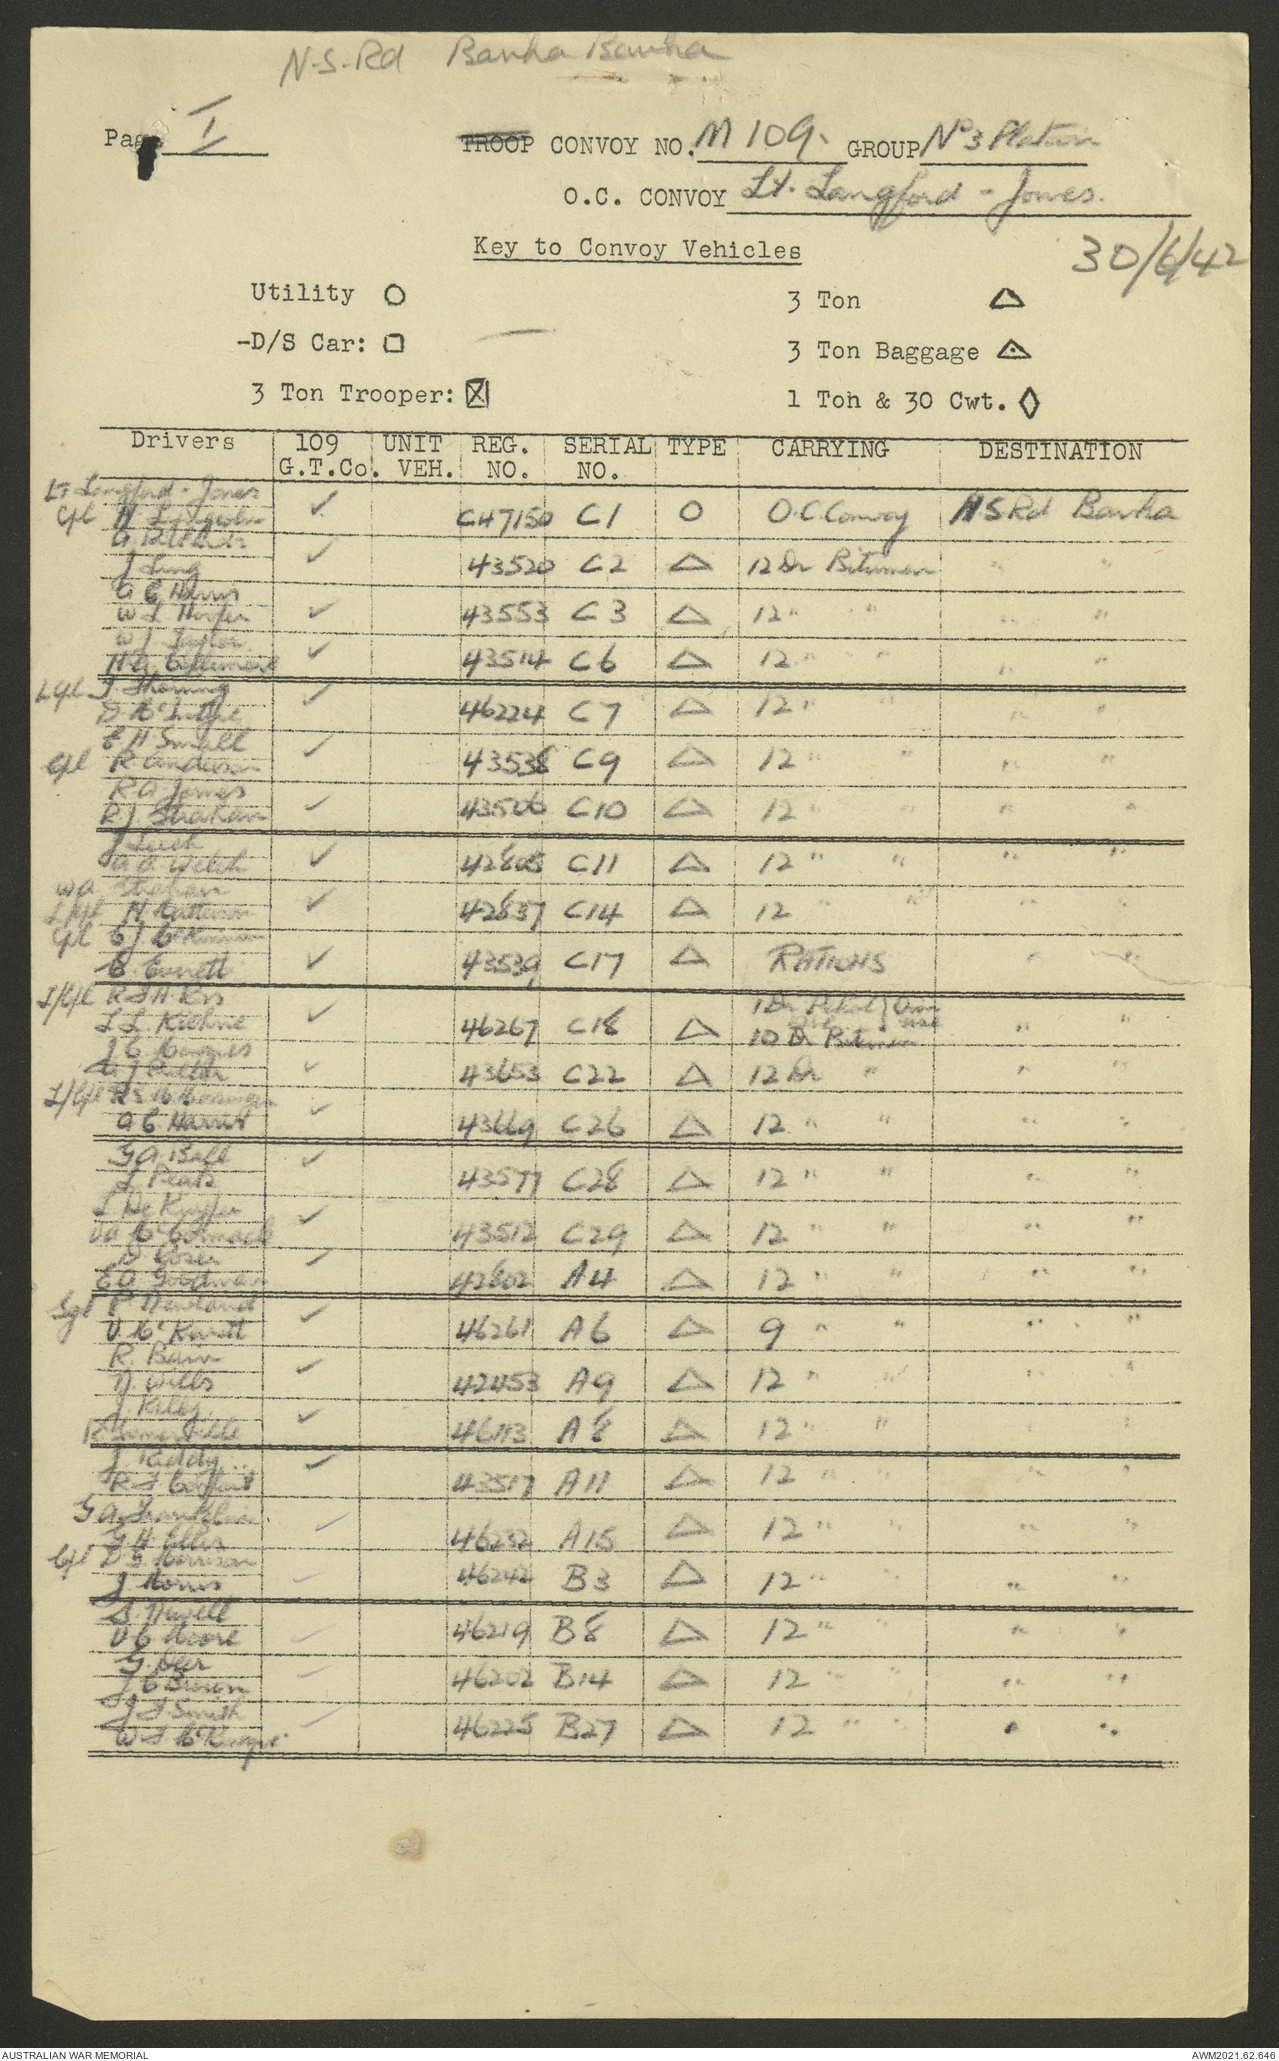 N-S-Rd Banka Banka
Page I
TROOP CONVOY NO. M 109. GROUP No 3 Platoon
O.C. CONVOY Lt. Langford-Jones.
Key to Convoy Vehicles
30/6/42
Utility 3 Ton
-D/S Car: 3 Ton Baggage
3 Ton Trooper: 1 Ton & 30 Cwt.
Drivers 109 UNIT REG. SERIAL TYPE CARRYING DESTINATION
G.T.Co. VEH. NO. NO.
Lt Langford-Jones ✓
Cpl H. C47150 C1 O O.C. Convoy N S Rd Banka
✓
J Lung 43520 C2 △ 12 Dr Bitumen " "
A E Harris
W L Hooper ✓ 43553 C3 △ 12 " " " "
W J Taylor
✓ 43514 C6 △ 12 " " " "
L/Cpl ✓
D McIntyre 46224 C7 △ 12 " " " "
E H Small
Cpl R Anderson ✓ 43538 C9 △ 12 " " " "
R A James
R J Strahan ✓ 43506 C10 △ 12 " " " "
J Leech
A A Welch ✓ 42805 C11 △ 12 " " " "
W A Strahan
L/Cpl N Patterson ✓ 42837 C14 △ 12 " " " "
Cpl E J
E. Everett ✓ 43539 C17 △ RATIONS " "
L/Cpl 1 Dr Petrol Own use
L L Kiehne ✓ 46267 C18 △ 10 Dr Bitumen " "
J E Menzies
✓ 43653 C22 △ 12 Dr " " "
L/Cpl
A E Harris ✓ 43669 C26 △ 12 " " " "
G A Ball
L Pears ✓ 43577 C28 △ 12 " " " "
L De Kuyfer
V A McCormack ✓ 43512 C29 △ 12 " " " "
E A Goodman ✓ 42802 A4 △ 12 " " " "
Sgt P Newland
V Mc ✓ 46261 A6 △ 9 " " " "
R. Bain
N. Wills ✓ 42453 A9 △ 12 " " " "
J. Kelly.
R Somerville ✓ 46113 A8 △ 12 " " " "
J. Reddy
R S ✓ 43517 A11 △ 12 " " " "
G A. Franklin
G H Ellis ✓ 46232 A15 △ 12 " " " "
Cpl D G Morrison
J Morris ✓ 46242 B3 △ 12 " " " "
S. Newell
V C Moore ✓ 46219 B8 △ 12 " " " "
J C Brown ✓ 46202 B14 △ 12 " " " "
J S Smith
W S McKenzie ✓ 46225 B27 △ 12 " " " "
AUSTRALIAN WAR MEMORIAL AWM2021.62.646